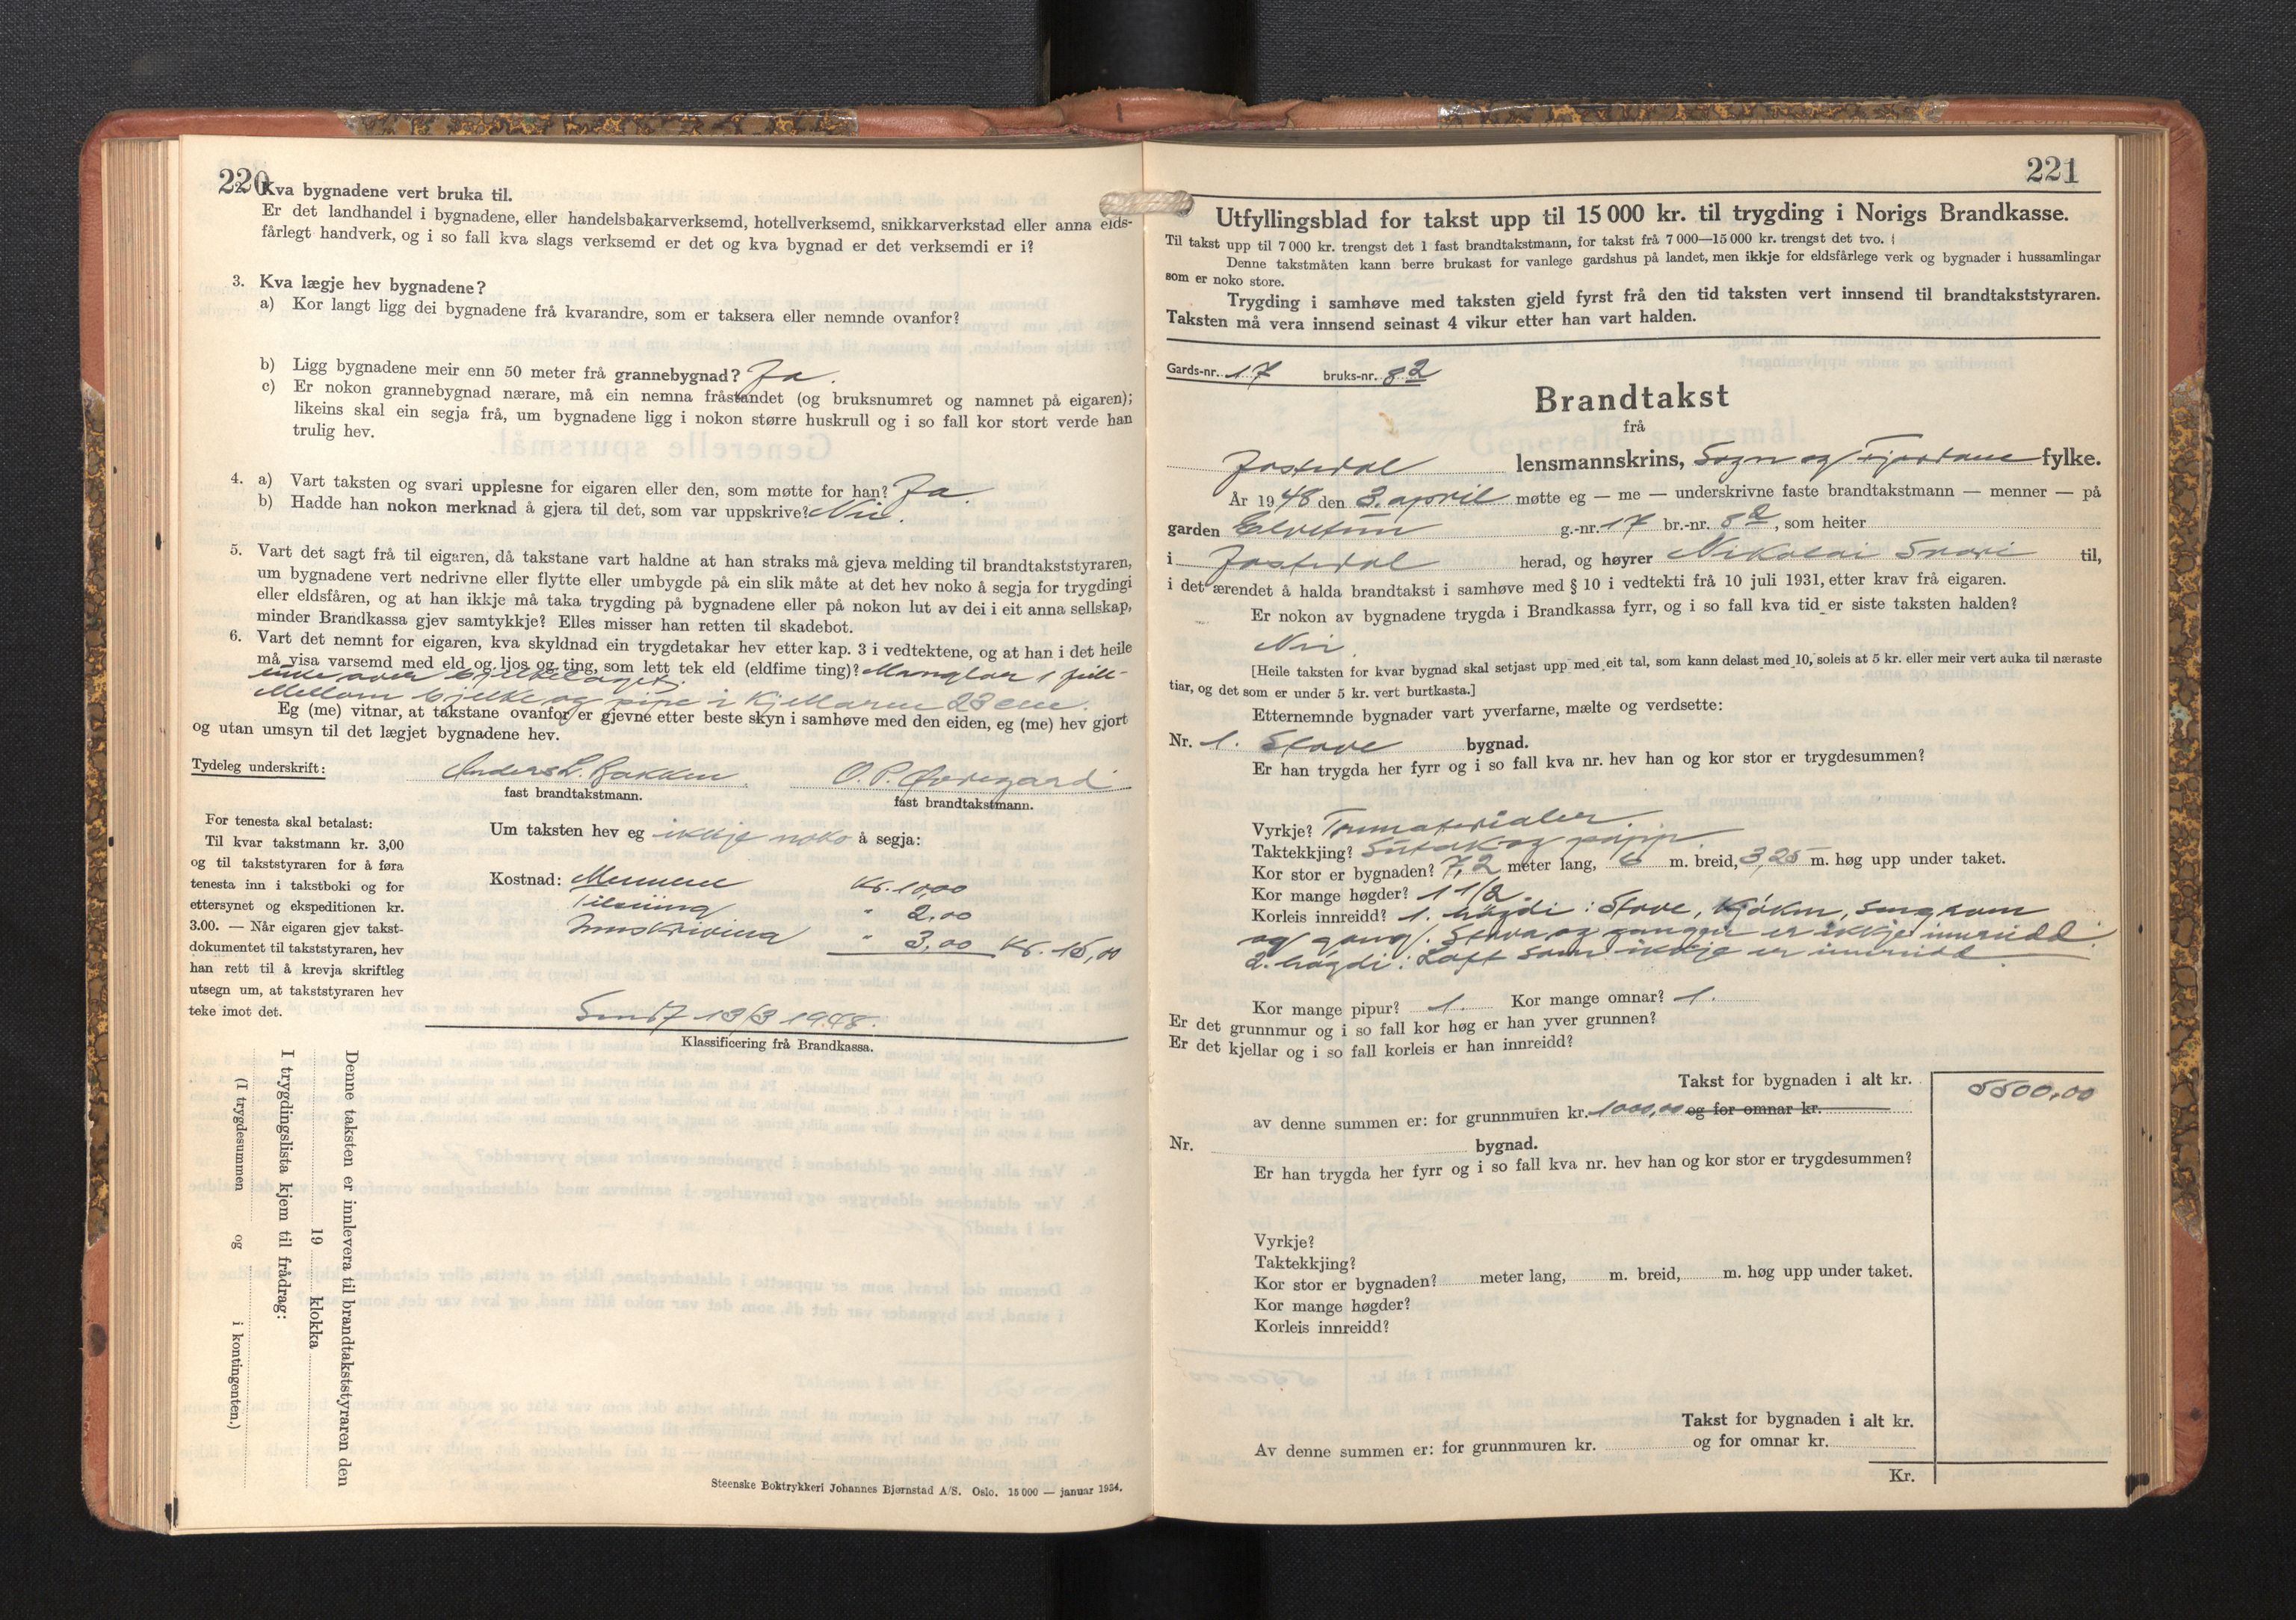 220
2. Kva bygnadene vert bruka til.
Er det landhandel i bygnadene, eller handelsbakarverksemd, hotellverksemd, snikkarverkstad eller anna elds-
fårlegt handverk, og i so fall kva slags verksemd er det og kva bygnad er det verksemdi er i?
3. Kva lægje hev bygnadene?
a) Kor langt ligg dei bygnadene frå kvarandre, som er taksera eller nemnde ovanfor?
b) Ligg bygnadene meir enn 50 meter frå grannebygnad? Ja.
c) Er nokon grannebygnad nærare, må ein nemna fråstandet (og bruksnumret og namnet på eigaren);
likeins skal ein segja frå, um bygnadene ligg i nokon større huskrull og i so fall kor stort verde han
trulig hev.
4. a) Vart taksten og svari upplesne for eigaren eller den, som møtte for han? Ja.
b) Hadde han nokon merknad å gjera til det, som var uppskrive? Nei.
5. Vart det sagt frå til eigaren, då takstane vart haldne at han straks må gjeva melding til brandtakststyraren,
um bygnadene vert nedrivne eller flytte eller umbygde på ein slik måte at det hev noko å segja for trygdingi
eller eldsfåren, og at han ikkje må taka trygding på bygnadene eller på nokon lut av dei i eit anna sellskap,
minder Brandkassa gjev samtykkje? Elles misser han retten til skadebot.
6. Vart det nemnt for eigaren, kva skyldnad ein trygdetakar hev etter kap. 3 i vedtektene, og at han i det heile
må visa varsemd med eld og ljos og ting, som lett tek eld (eldfime ting)? Manglar 1 full-
over bjelkelaget.
Mellom bjelke og pipe i kjellaren 23 cm.
Eg (me) vitnar, at takstane ovanfor er gjevne etter beste skyn i samhøve med den eiden, eg (me) hev gjort
og utan umsyn til det lægjet bygnadene hev.
Tydeleg underskrift: Anders L. Bakken O. P. Øvregard
fast brandtakstmann. fast brandtakstmann.
For tenesta skal betalast:
Til kvar takstmann kr. 3,00
og til takststyraren for å føra
tenesta inn i takstboki og for
ettersynet og ekspeditionen kr.
3.00. — Når eigaren gjev takst-
dokumentet til takststyraren, hev
han rett til å krevja skriftleg
utsegn um, at takststyraren hev
teke imot det.
Um taksten hev eg ikkje noko å segja:
Kostnad: Mennene Kr. 10,00
" 2,00
Innskriving " 3,00 Kr. 15,00
Sendt 13/3 1948.
Klassificering frå Brandkassa.
Denne taksten er innlevera til brandtakststyraren den
19 klokka
I trygdingslista kjem til frådrag:
(I trygdesummen og i kontingenten.)
Steenske Boktrykkeri Johannes Bjørnstad A/S. Oslo. 15 000 — januar 1934.
221
Utfyllingsblad for takst upp til 15 000 kr. til trygding i Norigs Brandkasse.
Til takst upp til 7 000 kr. trengst det 1 fast brandtakstmann, for takst frå 7 000—15 000 kr. trengst det tvo.
Denne takstmåten kann berre brukast for vanlege gardshus på landet, men ikkje for eldsfårlege verk og bygnader i hussamlingar
som er noko store.
Trygding i samhøve med taksten gjeld fyrst frå den tid taksten vert innsend til brandtakststyraren.
Taksten må vera innsend seinast 4 vikur etter han vart halden.
Gards-nr. 17 bruks-nr. 82
Brandtakst
frå
Jostedal lensmannskrins, Sogn og Fjordane fylke.
År 1948 den 3. april møtte eg — me — underskrivne faste brandtakstmann — menner — på
garden Elvetun g.-nr. 17 br.-nr. 82, som heiter
i Jostedal herad, og høyrer Nikolai Snøri til,
i det ærendet å halda brandtakst i samhøve med § 10 i vedtekti frå 10 juli 1931, etter krav frå eigaren.
Er nokon av bygnadene trygda i Brandkassa fyrr, og i so fall kva tid er siste taksten halden?
Nei.
[Heile taksten for kvar bygnad skal setjast upp med eit tal, som kann delast med 10, soleis at 5 kr. eller meir vert auka til næraste
tiar, og det som er under 5 kr. vert burtkasta.]
Etternemnde bygnader vart yverfarne, mælte og verdsette:
Nr. 1. Stove bygnad.
Er han trygda her fyrr og i so fall kva nr. hev han og kor stor er trygdesummen?
Vyrkje? Trematerialer.
Taktekkjing? Sutak og papp.
Kor stor er bygnaden? 7,2 meter lang, 6 m. breid, 3,25 m. høg upp under taket.
Kor mange høgder? 1 1/2.
Korleis innreidd? 1. høgdi: Stove, kjøken, sengrom
og gang. Stova og gangen er ikkje innreidd.
2. høgdi: Loft som ikkje er innreidd.
Kor mange pipur? 1. Kor mange omnar? 1.
Er det grunnmur og i so fall kor høg er han yver grunnen?
Er det kjellar og i so fall korleis er han innreidd?
Takst for bygnaden i alt kr. 5500,00
av denne summen er: for grunnmuren kr. 1000,00 og for omnar kr.
Nr. bygnad.
Er han trygda her fyrr og i so fall kva nr. hev han og kor stor er trygdesummen?
Vyrkje?
Taktekkjing?
Kor stor er bygnaden? meter lang, m. breid, m. høg upp under taket.
Kor mange høgder?
Korleis innreidd?
Takst for bygnaden i alt kr.
Av denne summen er: for grunnmuren kr. og for omnar kr.
Kr.